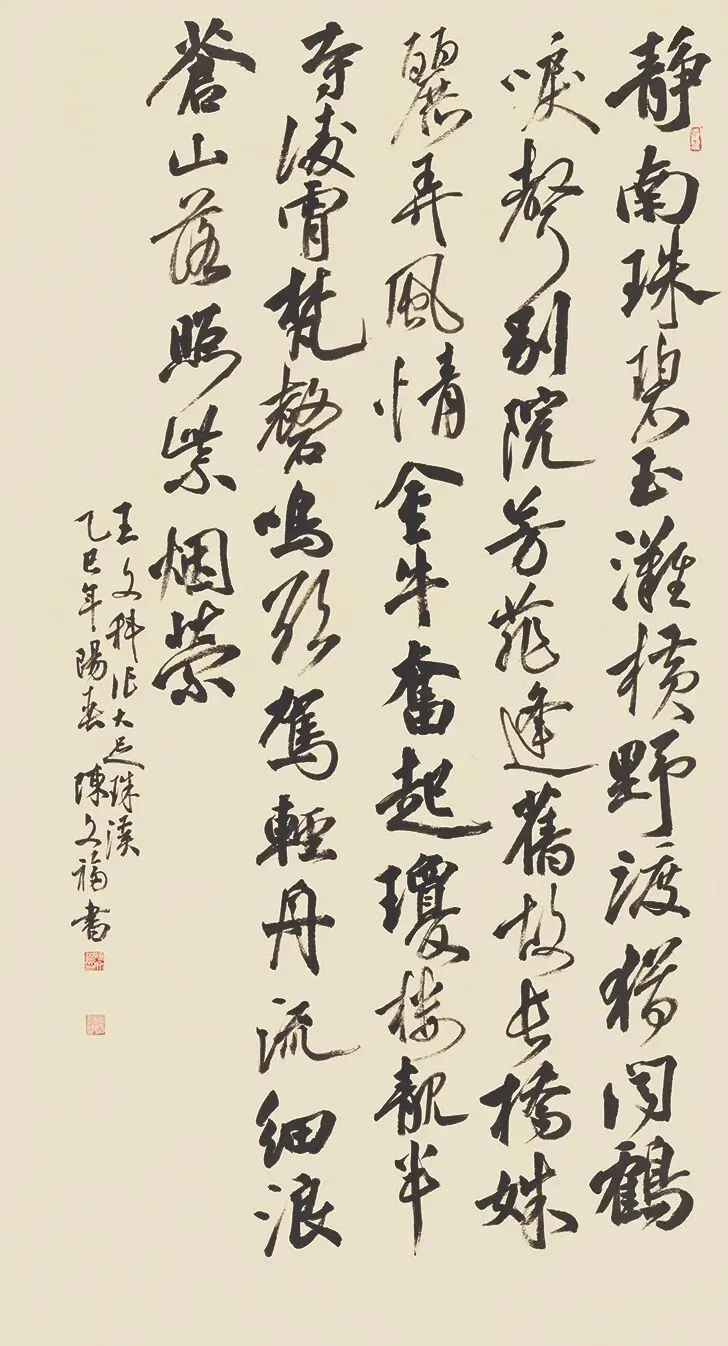 靜南珠碧玉灘橫野渡猶聞鶴
唳聲別院芳菲逢舊故長橋姝
麗弄風情金牛奮起瓊樓靚半
寺凌霄梵磬鳴欲駕輕舟流細浪
蒼山落照紫烟縈
王文科作大足珠溪
乙巳年陽春 陳文福書